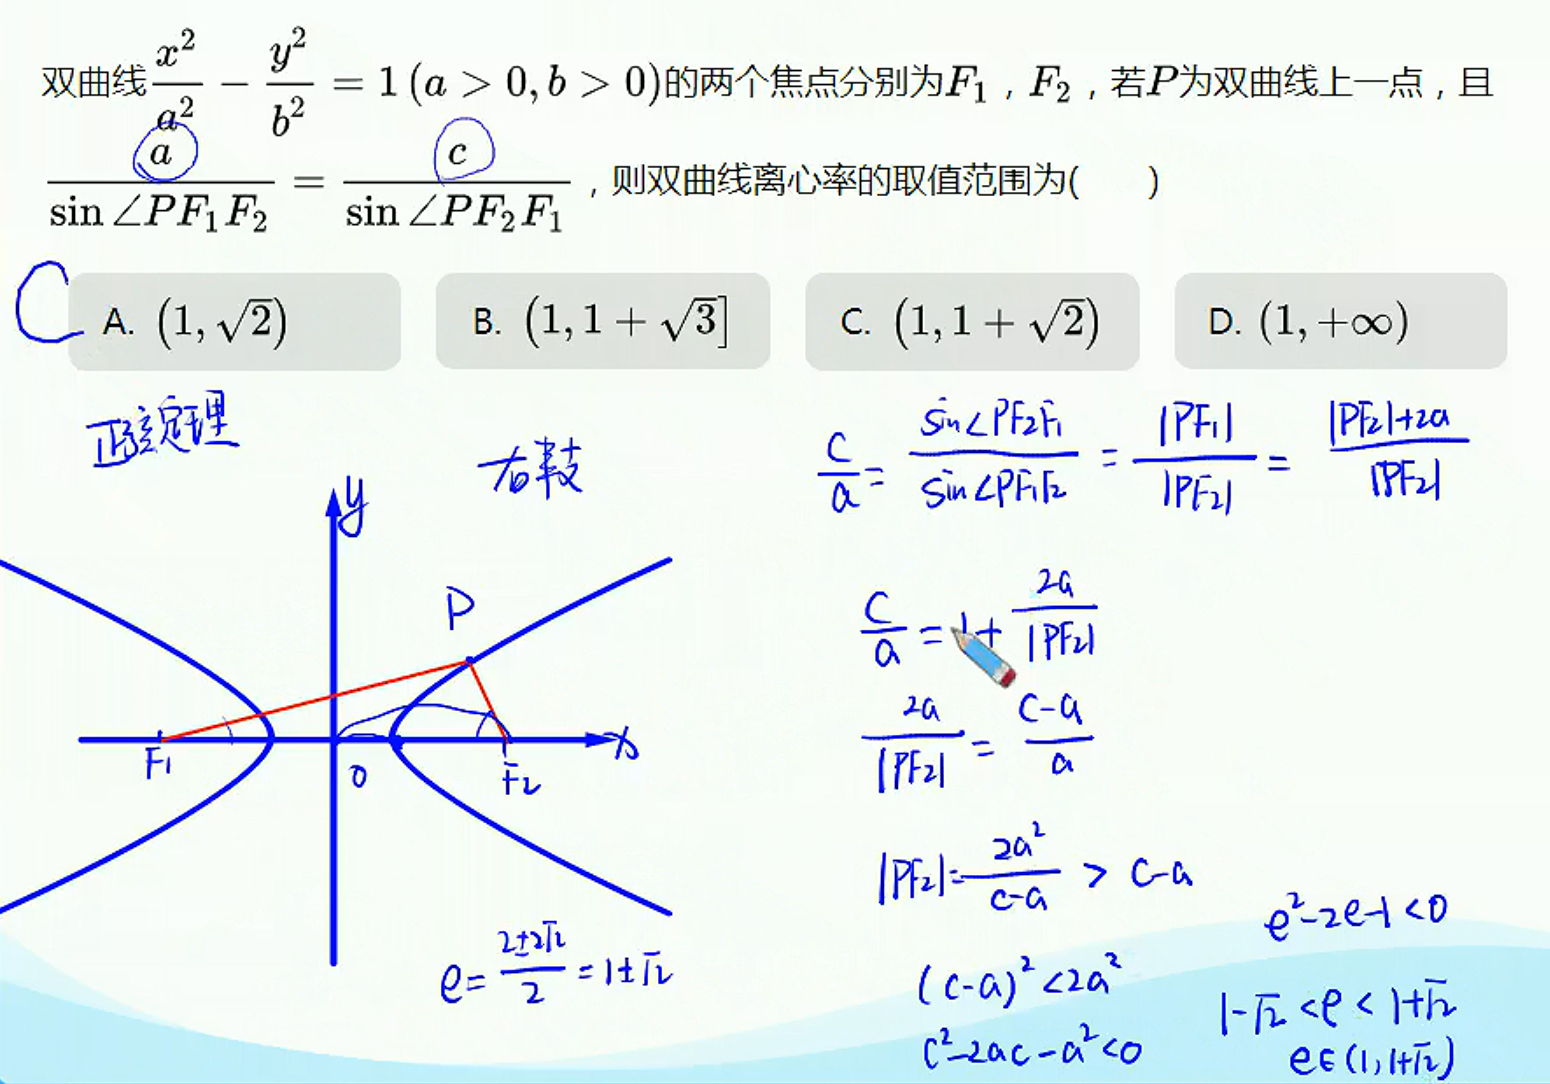 双曲线x²/a² − y²/b² = 1 (a > 0, b > 0)的两个焦点分别为F₁，F₂，若P为双曲线上一点，且
a/sin∠PF₁F₂ = c/sin∠PF₂F₁，则双曲线离心率的取值范围为(　　)
C
A. (1, √2)
B. (1, 1 + √3]
C. (1, 1 + √2)
D. (1, +∞)
正弦定理
右支
c/a = sin∠PF₂F₁/sin∠PF₁F₂ = |PF₁|/|PF₂| = |PF₂|+2a/|PF₂|
y
P
F₁
O
F₂
x
c/a = 1+ 2a/|PF₂|
2a/|PF₂| = c-a/a
|PF₂| = 2a²/c-a > c-a
(c-a)² < 2a²
c²-2ac-a² < 0
e²-2e-1 < 0
e = 2±2√2/2 = 1±√2
1-√2 < e < 1+√2
e∈(1, 1+√2)